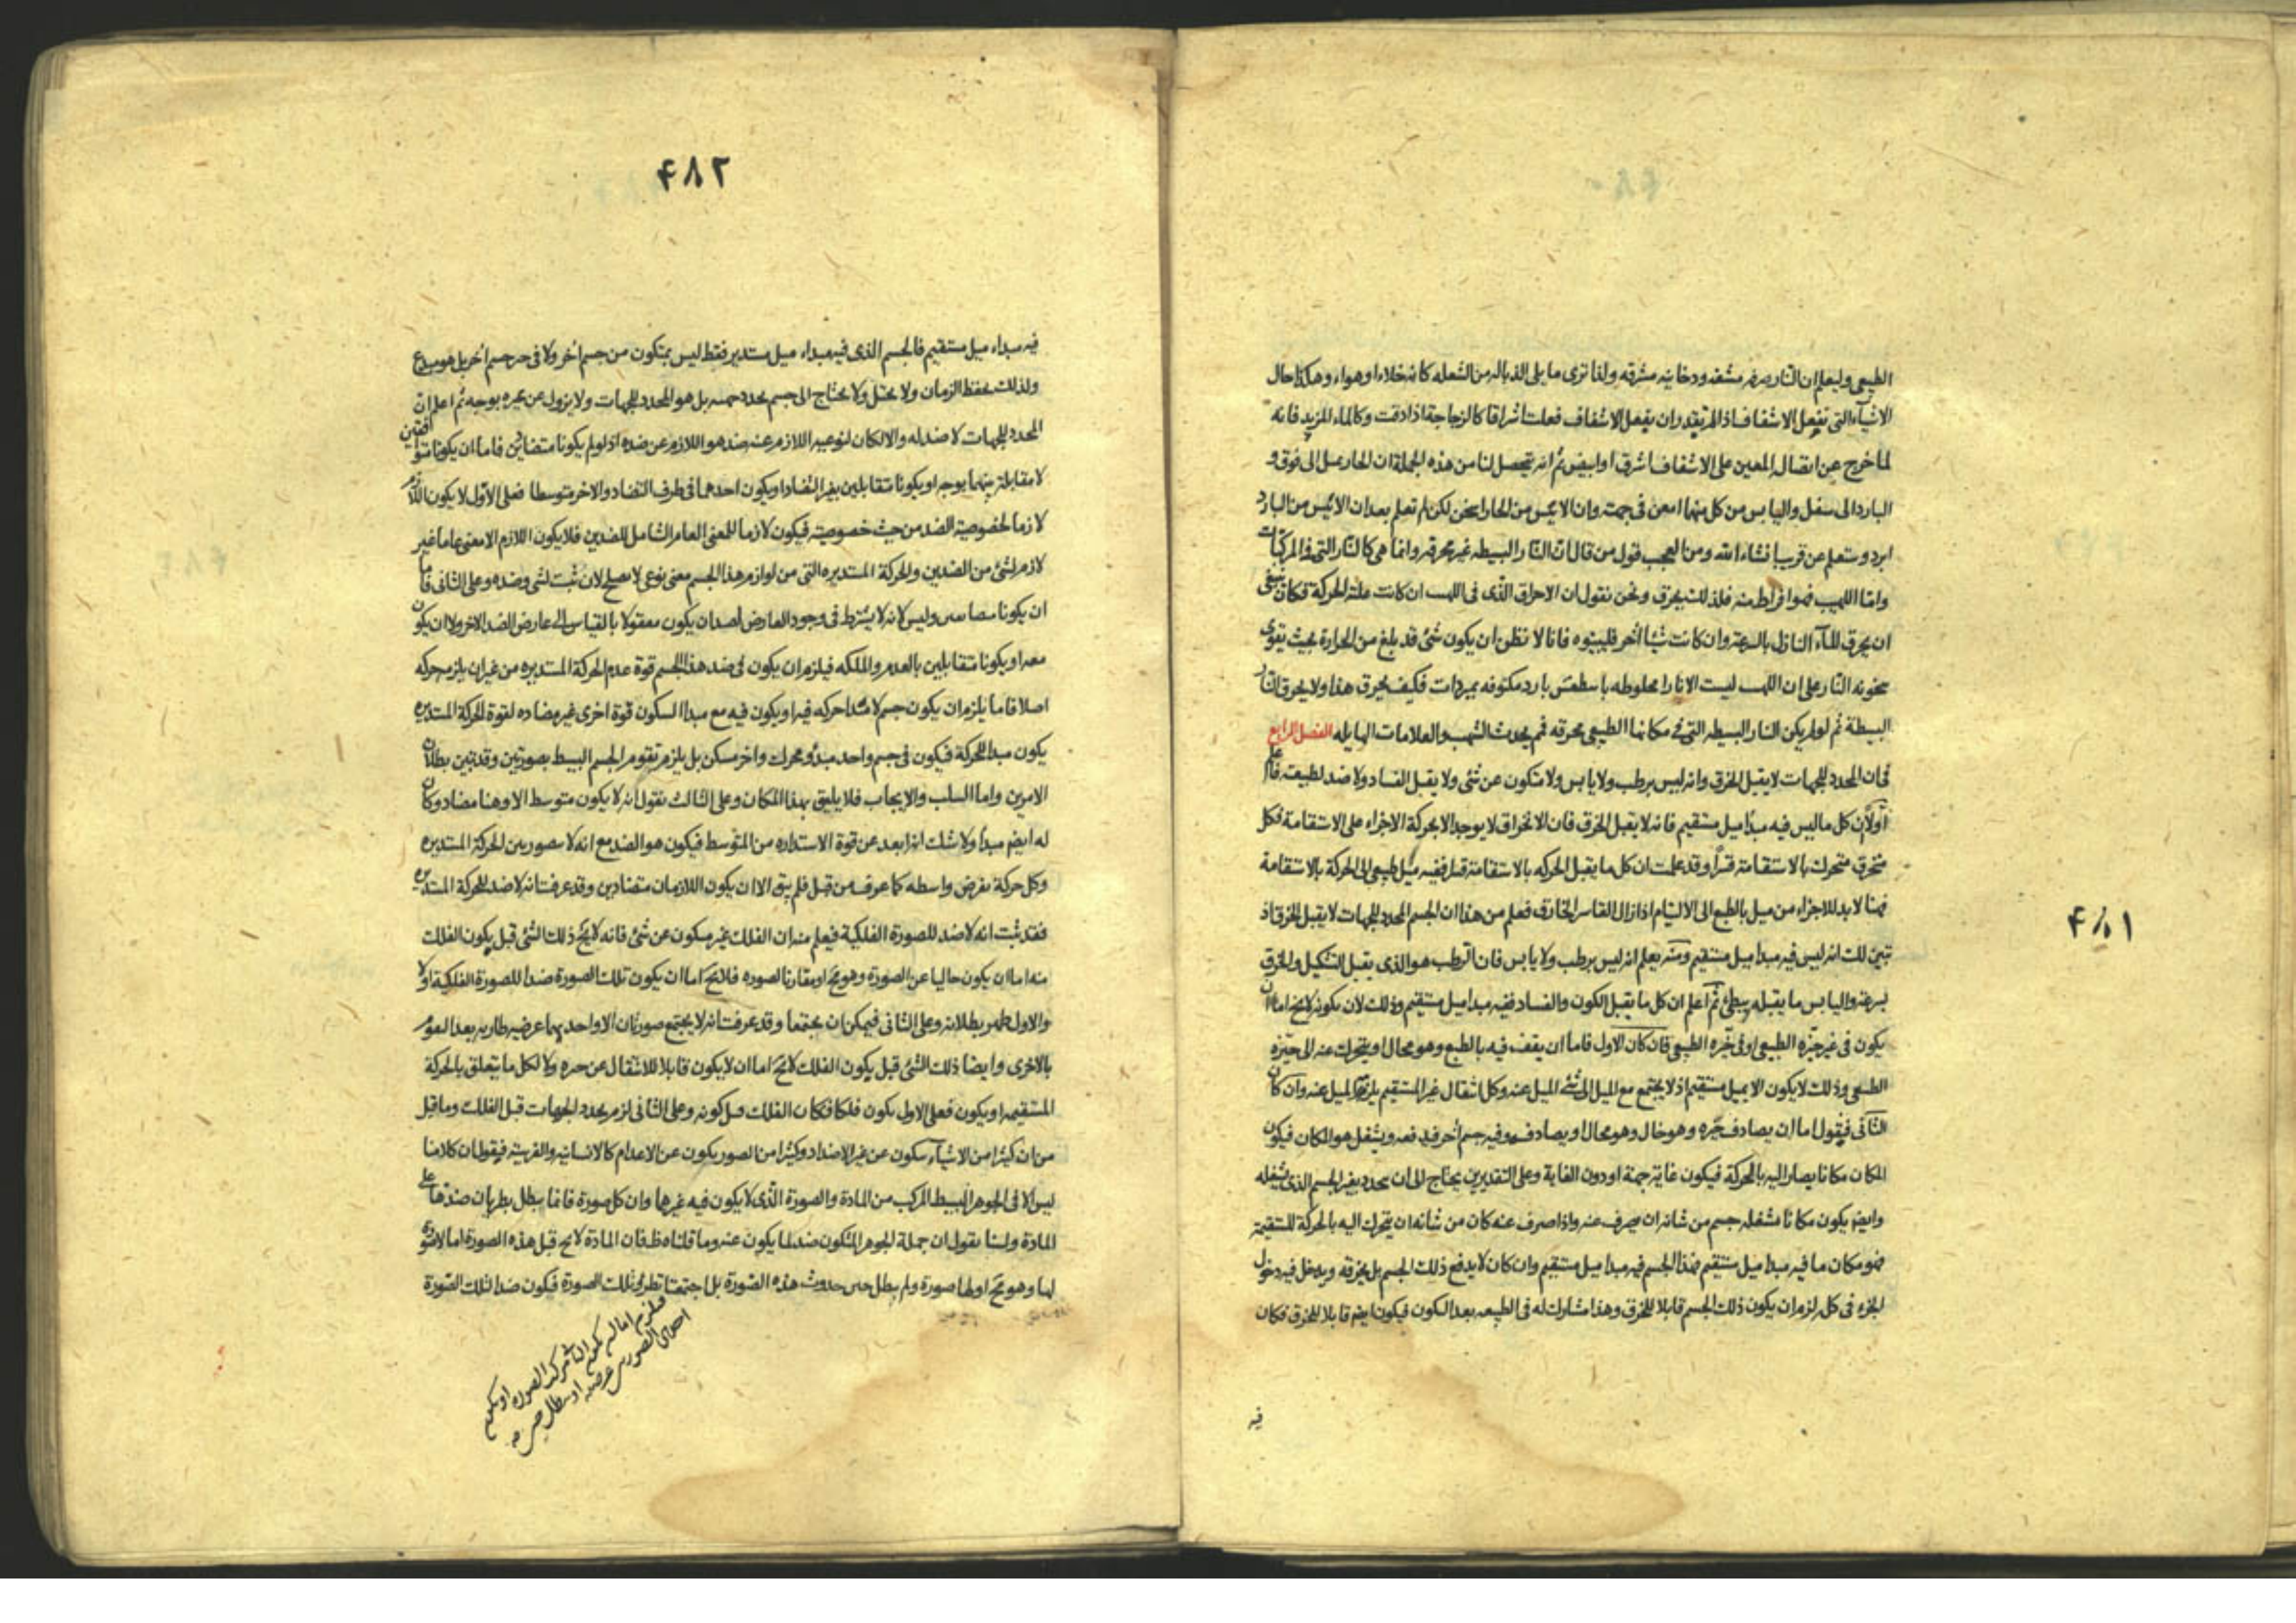 ۴۸۱
الطبیعی ولیعلم ان النار صرفه مشفه ودخانیه مشرقه ولذا تری ما یلی الذباله من الشعله کانه خلاء او هواء وهکذا حال
الاشیآء التی تفعل الاشفاف اذا لم تقدر ان یفعل الاشفاف فعلت اشراقا کالزجاجة اذا دقت وکالماء المزبد فانه
لما خرج عن اتصاله المعین علی الاشفاف اشرق او ابیض ثم انه تحصل لنا من هذه الجملة ان الحار یمیل الی فوق و
البارد الی سفل والیابس من کل منهما امعن فی جهته وان الایبس من الحار اسخن لکن لم تعلم بعد ان الایبس من البارد
ابرد وستعلم عن قریب انشاء الله ومن العجب قول من قال ان النار البسیطه غیر محرقه وانما هی کالنار التی فی المرکبات
واما اللهب فهو افراط منه فلذلک یحرق ونحن نقول ان الاحراق الذی فی اللهب ان کانت علته الحرکة فکان ینبغی
ان یحرق المآء النازل بالسرعة وان کانت شیئا آخر فلیبینوه فانا لا نظن ان یکون شئ قد بلغ من الحرارة بحیث تقوی
سخونه النار علی ان اللهب لیست الا نارا مخلوطه بارد مکنوفه بمبردات فکیف یحرق هذا ولا یحرق النار
البسیطة ثم لو لم یکن النار البسیطه التی فی مکانها الطبیعی محرقه فم یحدث الشهب والعلامات الهایله الفصل الرابع
فی ان المحدد للجهات لا یقبل الخرق وانه لیس برطب ولا یابس ولا متکون عن شئ ولا یقبل الفساد ولا ضد لطبیعته فاعلم
اولا ان کل ما لیس فیه مبدا میل مستقیم فانه لا یقبل الخرق فان الانخراق لا یوجد الا بحرکة الاجزاء علی الاستقامة فکل
منخرق متحرک بالاستقامة قسرا وقد علمت ان کل ما یقبل الحرکه بالاستقامة قسرا ففیه میل طبیعی الی الحرکة بالاستقامة
فهنا لا بد للاجزاء من میل بالطبع الی الالتیام اذا زال القاسر الخارق فعلم من هذا ان الجسم المحدد للجهات لا یقبل الخرق اذ
تبین لک انه لیس فیه مبدا میل مستقیم ومنه یعلم انه لیس برطب ولا یابس فان الرطب هو الذی یقبل التشکیل والخرق
بسرعة والیابس ما یقبله ببطئ ثم اعلم ان کل ما یقبل الکون والفساد ففیه مبدا میل مستقیم وذلک لان مکونه لا یخ اما ان
یکون فی غیر حیزه الطبیعی او فی حیزه الطبیعی فان کان الاول فاما ان یقف فیه بالطبع وهو محال او یتحرک عنه الی حیزه
الطبیعی وذلک لا یکون الا بمیل مستقیم اذ لا یجتمع مع المیل الی شئ المیل عنه وکل انتقال غیر المستقیم یلزمه المیل عنه وان کان
الثانی فیقول اما ان یصادف حیزه وهو خال وهو محال او یصادفه وفیه جسم آخر فیدفعه ویشغل هو المکان فیکون
المکان مکانا یصار الیه بالحرکة فیکون غایة جهة او دون الغایة وعلی التقدیرین یحتاج الی ان یحدد بغیر الجسم الذی یشغله
وایض یکون مکانا یشغله جسم من شانه ان یصرف عنه واذا صرف عنه کان من شانه ان یتحرک الیه بالحرکة المستقیمة
فهو مکان ما فیه مبدا میل مستقیم فهذا الجسم فیه مبدا میل مستقیم وان کان لا یدفع ذلک الجسم بل یخرقه ویدخل فیه دخول
الجزء فی کل لزم ان یکون ذلک الجسم قابلا للخرق وهذا مشارک له فی الطبیعه بعد الکون فیکون ایض قابلا للخرق فکان
فیه
۴۸۲
فیه مبداء میل مستقیم فالجسم الذی فیه مبداء میل مستدیر فقط لیس بمتکون من جسم آخر ولا فی حیز جسم آخر بل هو مبدع
ولذلک یحفظ الزمان ولا یختل ولا یحتاج الی جسم یحدد جهته بل هو المحدد للجهات ولا یزول عن حیزه بوجه ثم اعلم ان
المحدد للجهات لا ضد له والا لکان لنوعیه اللازم عنه ضد هو اللازم عن ضده اذ لو لم یکونا متضادین فاما ان یکونا متوافقین
لا مقابلة بینهما بوجه او یکونا متقابلین بغیر التضاد او یکون احدهما فی طرف التضاد والاخر متوسطا فعلی الاول لا یکون اللازم
لازما لخصوصیة الضد من حیث خصوصیته فیکون لازما للمعنی العام الشامل للضدین فلا یکون اللازم الا معنی عاما غیر
لازم لشئ من الضدین والحرکة المستدیره التی من لوازم هذا الجسم معنی نوعی لا یصلح لان تثبت لشئ وضده وعلی الثانی فاما
ان یکونا ولیس لانه لا یشترط فی وجود العارض لضد ان یکون معقولا بالقیاس الی عارض الضد الاخر ولا ان یکون
معه او یکونا متقابلین بالعدم والملکه فیلزم ان یکون فی ضد هذا الجسم قوة عدم الحرکة المستدیره من غیر ان یلزم حرکه
اصلا فاما یلزم ان یکون جسم لا مبدا حرکه فیه او یکون فیه مع مبدا السکون قوة اخری غیر مضاده لقوة الحرکة المستدیره
یکون مبدا للحرکة فیکون فی جسم واحد مبدؤ محرک واخر مسکن بل یلزم تقوم الجسم البسیط بصورتین وقد تبین بطلان
الامرین واما السلب والایجاب فلا یلیق بهذا المکان وعلی الثالث نقول انه لا یکون متوسط الا وهنا مضاد وکان
له ایضم مبدا ولا شک انه ابعد عن قوة الاستداره من المتوسط فیکون هو الضد مع انه لا الحرکة المستدیره
وکل حرکة تفرض واسطه کما عرف من قبل فلم یبق الا ان یکون اللازمان متضادین وقد عرفت انه لا ضد للحرکة المستدیره
فقد ثبت انه لا ضد للصورة الفلکیة فیعلم منه ان الفلک غیر متکون عن شئ فانه لا یخ ذلک الشئ قبل یکون الفلک
منه اما ان یکون خالیا عن الصورة وهو مح او مقارنا لصوره فلا یخ اما ان یکون تلک الصورة ضدا للصورة الفلکیة او لا
والاول ظهر بطلانه وعلی الثانی فیمکن ان یجتمعا وقد عرفت انه لا یجتمع صورتان الا واحدیهما عرضیه طاریه بعد التقوم
بالاخری وایضا ذلک الشئ قبل یکون الفلک لا یخ اما ان لا یکون قابلا للانتقال عن حیزه ولا لکل ما یتعلق بالحرکة
المستقیمه او یکون فعلی الاول یکون فلکا فکان الفلک قبل کونه وعلی الثانی لزم یحدد الجهات قبل الفلک وما قیل
من ان کثیرا من الاشیآء یتکون عن غیر الاضداد وکثیرا من الصور یکون عن الاعدام کالانسانیه والفرسیة فیقول ان کلامنا
لیس الا فی الجوهر البسیط المرکب من المادة والصورة الذی لا یکون فیه غیرها وان کل صورة فانما یبطل بطریان ضدها علی
المادة ولسنا نقول ان جملة الجوهر المتکون ضد لما یکون عنه وما قلناه ظ فان المادة لا یخ قبل هذه الصورة اما لا صورة
لها وهو مح او لها صورة ولم یبطل حین حدوث هذه الصورة بل اجتمعتا تلک الصورة فیکون ضدا لتلک الصورة